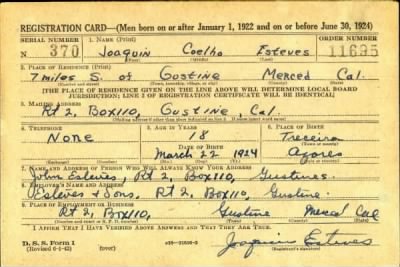 REGISTRATION CARD—(Men born on or after January 1, 1922 and on or before June 30, 1924)
SERIAL NUMBER 1. NAME (Print) ORDER NUMBER
N 370 Joaquin Coelho Esteves 11695
(First) (Middle) (Last)
2. PLACE OF RESIDENCE (Print)
7 miles S. of Gustine Merced Cal.
(THE PLACE OF RESIDENCE GIVEN ON THE LINE ABOVE WILL DETERMINE LOCAL BOARD
JURISDICTION; LINE 2 OF REGISTRATION CERTIFICATE WILL BE IDENTICAL)
3. MAILING ADDRESS
Rt 2, Box 110, Gustine Cal.
4. TELEPHONE 5. AGE IN YEARS 6. PLACE OF BIRTH
None 18
DATE OF BIRTH
March 22 1924 Azores
7. NAME AND ADDRESS OF PERSON WHO WILL ALWAYS KNOW YOUR ADDRESS
John Rt 2, Box 110, Gustine
8. EMPLOYER'S NAME AND ADDRESS
Esteves Sons, Rt 2, Box 110, Gustine
9. PLACE OF EMPLOYMENT OR BUSINESS
Rt 2, Box 110, Gustine Merced Cal
I AFFIRM THAT I HAVE VERIFIED ABOVE ANSWERS AND THAT THEY ARE TRUE.
D. S. S. Form 1
(over)
Joaquin Esteves
(Registrant's signature)